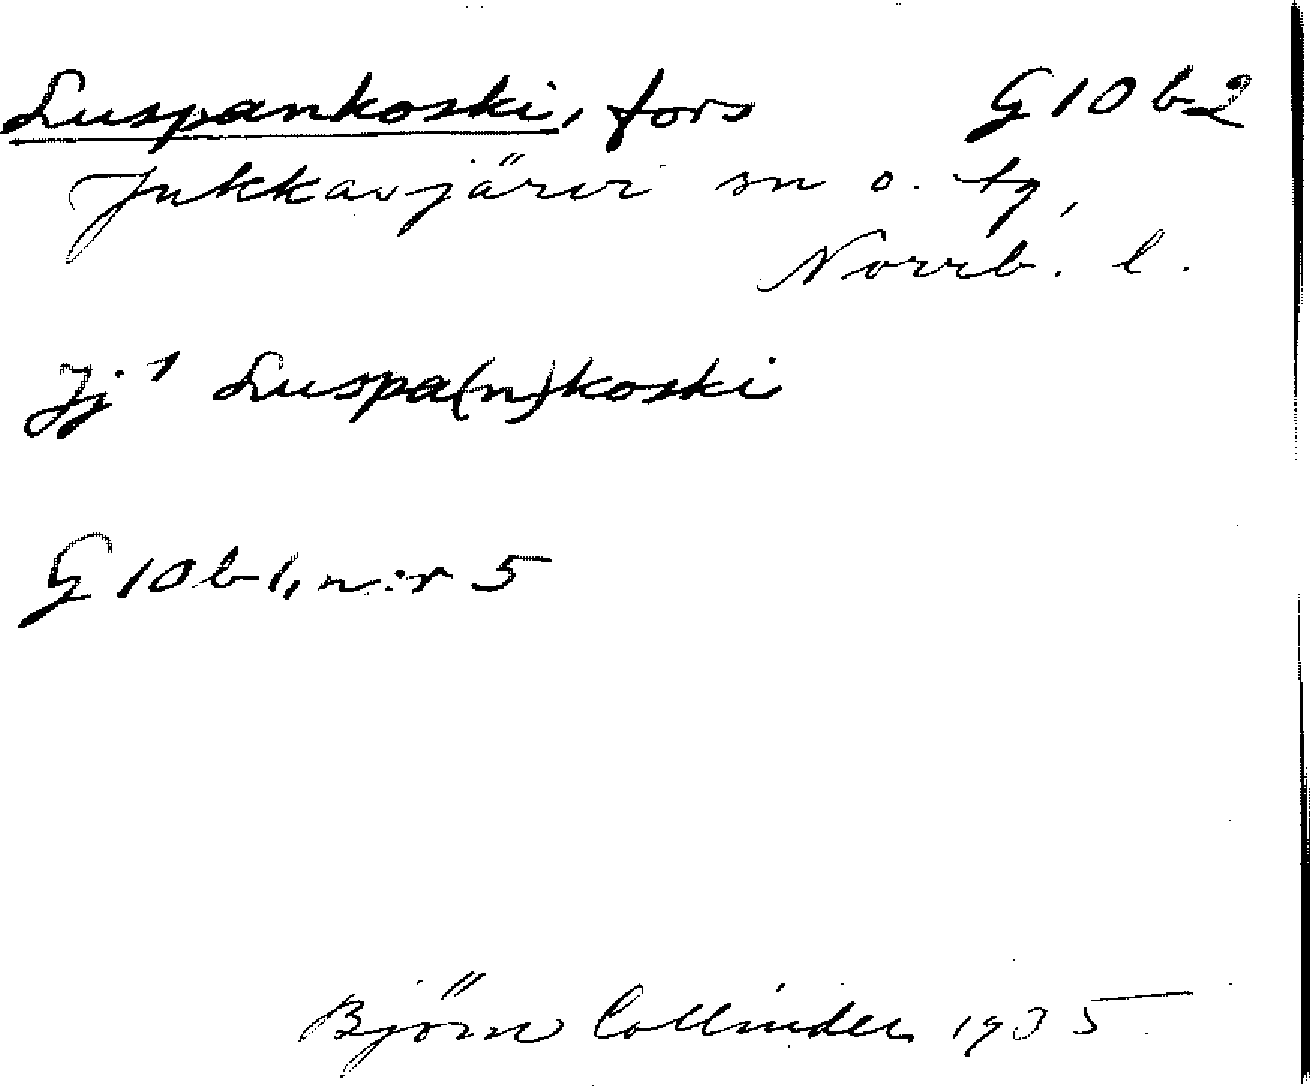 Luspankoski, fors G10b2
Jukkasjärvi sn o. tg,
Norrb. l.
Jj 1 Luspa(n)koski
G10b1, n:r 5
Björn Collinder 1935